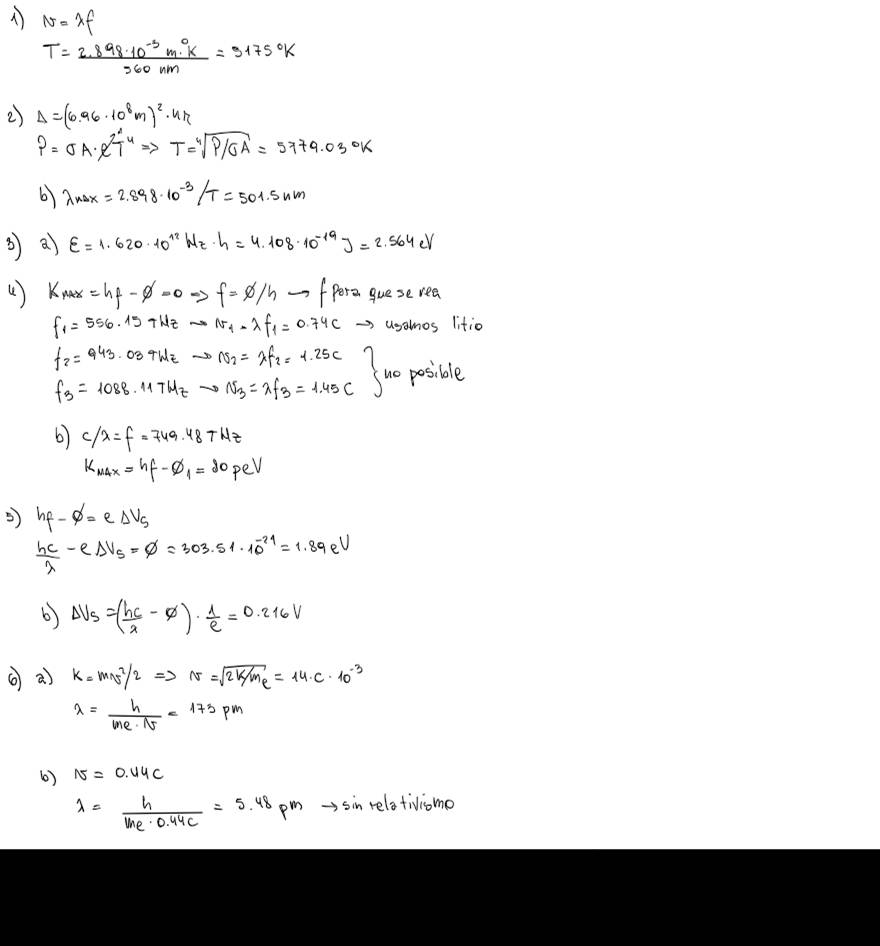 1) v = λf
T = 2.898·10⁻³ m·°K / 560 nm = 5175 °K
2) A = (6.96·10⁸ m)²·4π
P = σA·eT⁴ => T = ⁴√(P/σA) = 5779.03 °K
b) λmax = 2.898·10⁻³/T = 501.5 nm
3) a) E = 1.620·10¹² Hz·h = 4.108·10⁻¹⁹ J = 2.564 eV
4) KMAX = hf - Ø = 0 => f = Ø/h → f para que se rea
f₁ = 556.15 THz → v₁ = λf₁ = 0.74c → usamos litio
f₂ = 943.03 THz → v₂ = λf₂ = 1.25c
f₃ = 1088.11 THz → v₃ = λf₃ = 1.45c } no posible
b) c/λ = f = 749.48 THz
KMAX = hf - Ø₁ = 80 peV
5) hf - Ø = e ΔVs
hc/λ - e ΔVs = Ø = 303.51·10⁻²¹ = 1.89 eV
b) ΔVs = (hc/λ - Ø)·1/e = 0.216 V
6) a) K = mv²/2 => v = √(2K/me) = 14·c·10⁻³
λ = h / me·v = 173 pm
b) v = 0.44c
λ = h / me·0.44c = 5.48 pm → sin relativismo